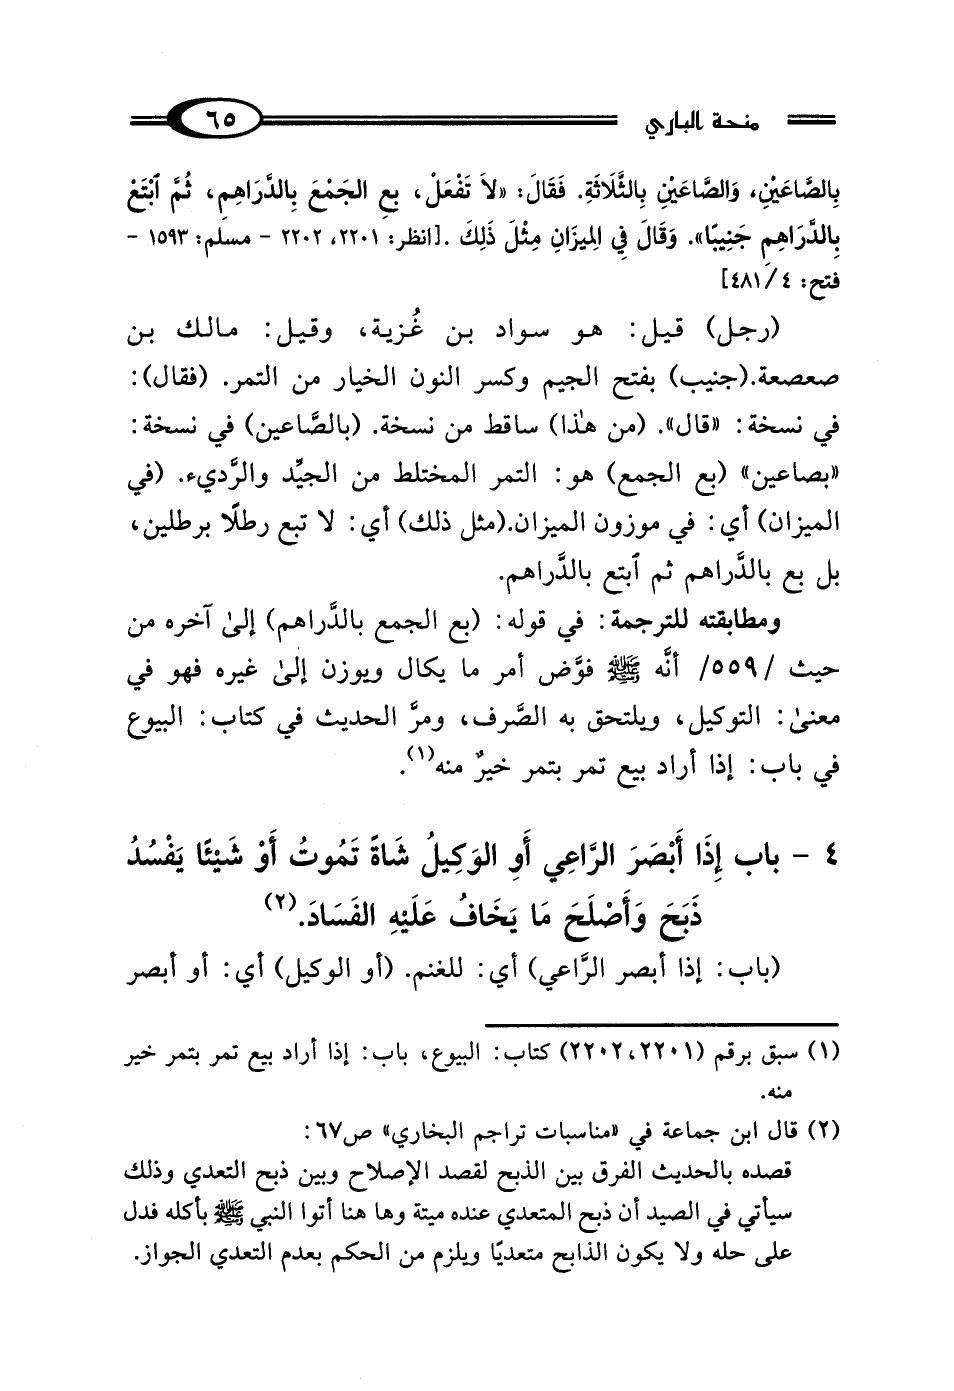 منحة الباري
٦٥
بِالصَّاعَيْنِ، وَالصَّاعَيْنِ بِالثَّلَاثَةِ. فَقَالَ: «لاَ تَفْعَلْ، بِعِ الجَمْعَ بِالدَّرَاهِمِ، ثُمَّ ٱبْتَعْ
بِالدَّرَاهِمِ جَنِيبًا». وَقَالَ فِي المِيزَانِ مِثْلَ ذَلِكَ .[انظر: ٢٢٠١، ٢٢٠٢ - مسلم: ١٥٩٣ -
فتح: ٤/ ٤٨١]
(رجل) قيل: هو سواد بن غُزية، وقيل: مالك بن
صعصعة.(جنيب) بفتح الجيم وكسر النون الخيار من التمر. (فقال):
في نسخة: «قال». (من هٰذا) ساقط من نسخة. (بالصَّاعين) في نسخة:
«بصاعين» (بع الجمع) هو: التمر المختلط من الجيِّد والرَّديء. (في
الميزان) أي: في موزون الميزان.(مثل ذلك) أي: لا تبع رطلًا برطلين،
بل بع بالدَّراهم ثم ٱبتع بالدَّراهم.
ومطابقته للترجمة: في قوله: (بع الجمع بالدَّراهم) إلىٰ آخره من
حيث /٥٥٩/ أنَّه ﷺ فوَّض أمر ما يكال ويوزن إلىٰ غيره فهو في
معنىٰ: التوكيل، ويلتحق به الصَّرف، ومرَّ الحديث في كتاب: البيوع
في باب: إذا أراد بيع تمر بتمر خيرٌ منه(١).
٤ - باب إِذَا أَبْصَرَ الرَّاعِي أَوِ الوَكِيلُ شَاةً تَمُوتُ أَوْ شَيْئًا يَفْسُدُ
ذَبَحَ وَأَصْلَحَ مَا يَخَافُ عَلَيْهِ الفَسَادَ.(٢)
(باب: إذا أبصر الرَّاعي) أي: للغنم. (أو الوكيل) أي: أو أبصر
(١) سبق برقم (٢٢٠١، ٢٢٠٢) كتاب: البيوع، باب: إذا أراد بيع تمر بتمر خير
منه.
(٢) قال ابن جماعة في «مناسبات تراجم البخاري» ص٦٧:
قصده بالحديث الفرق بين الذبح لقصد الإصلاح وبين ذبح التعدي وذلك
سيأتي في الصيد أن ذبح المتعدي عنده ميتة وها هنا أتوا النبي ﷺ بأكله فدل
على حله ولا يكون الذابح متعديًا ويلزم من الحكم بعدم التعدي الجواز.